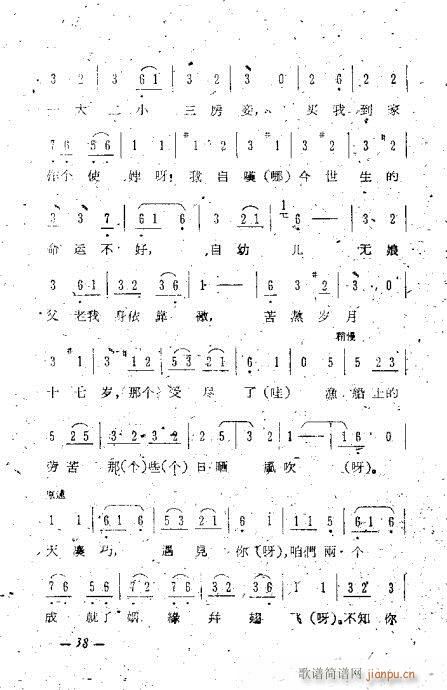 3 2 | 3 6 1 | 3 2 | 3 0 | 2 6 | 2 2 |
一大二小 三房妾, 买我到家
7 6 5 6 | 1 1 | #1 2 | 3 2 | #1 3 | 3 2 |
作个使婢呀! 我自嘆(哪)今世生的
3 3 7 | 6 1 6 | 3 2 1 | 1 6 — | 3 2 |
命运不好, 自幼儿 无娘
3 6 1 | 3 2 3 6 | 1 — | 6 3 | #2 3 |
父老我身依靠谁, 苦熬岁月
稍慢
#1 3 | 3 1 2 | 5 3 2 1 | 6 1 | 0 5 | 5 2 3 |
十七岁,那个受尽了(哇)漁船上的
5 2 5 | 3 2 3 2 | 3 2 | 2 1 | 1 — | 1 6 0 |
劳苦那(个)些(个)日晒 風吹 (呀)。
原速
1 1 | 6 1 6 | 5 3 2 1 | 6 1 | 1 1 5 | 6 1 6 |
天凑巧, 遇見你(呀),咱們兩个
7 6 5 6 | 7 6 7 6 | 7 6 7 6 | 1 3 | 3 2 3 |
成就了姻緣幷翅飞(呀)。不知你
— 38 —
歌谱简谱网 jianpu.cn